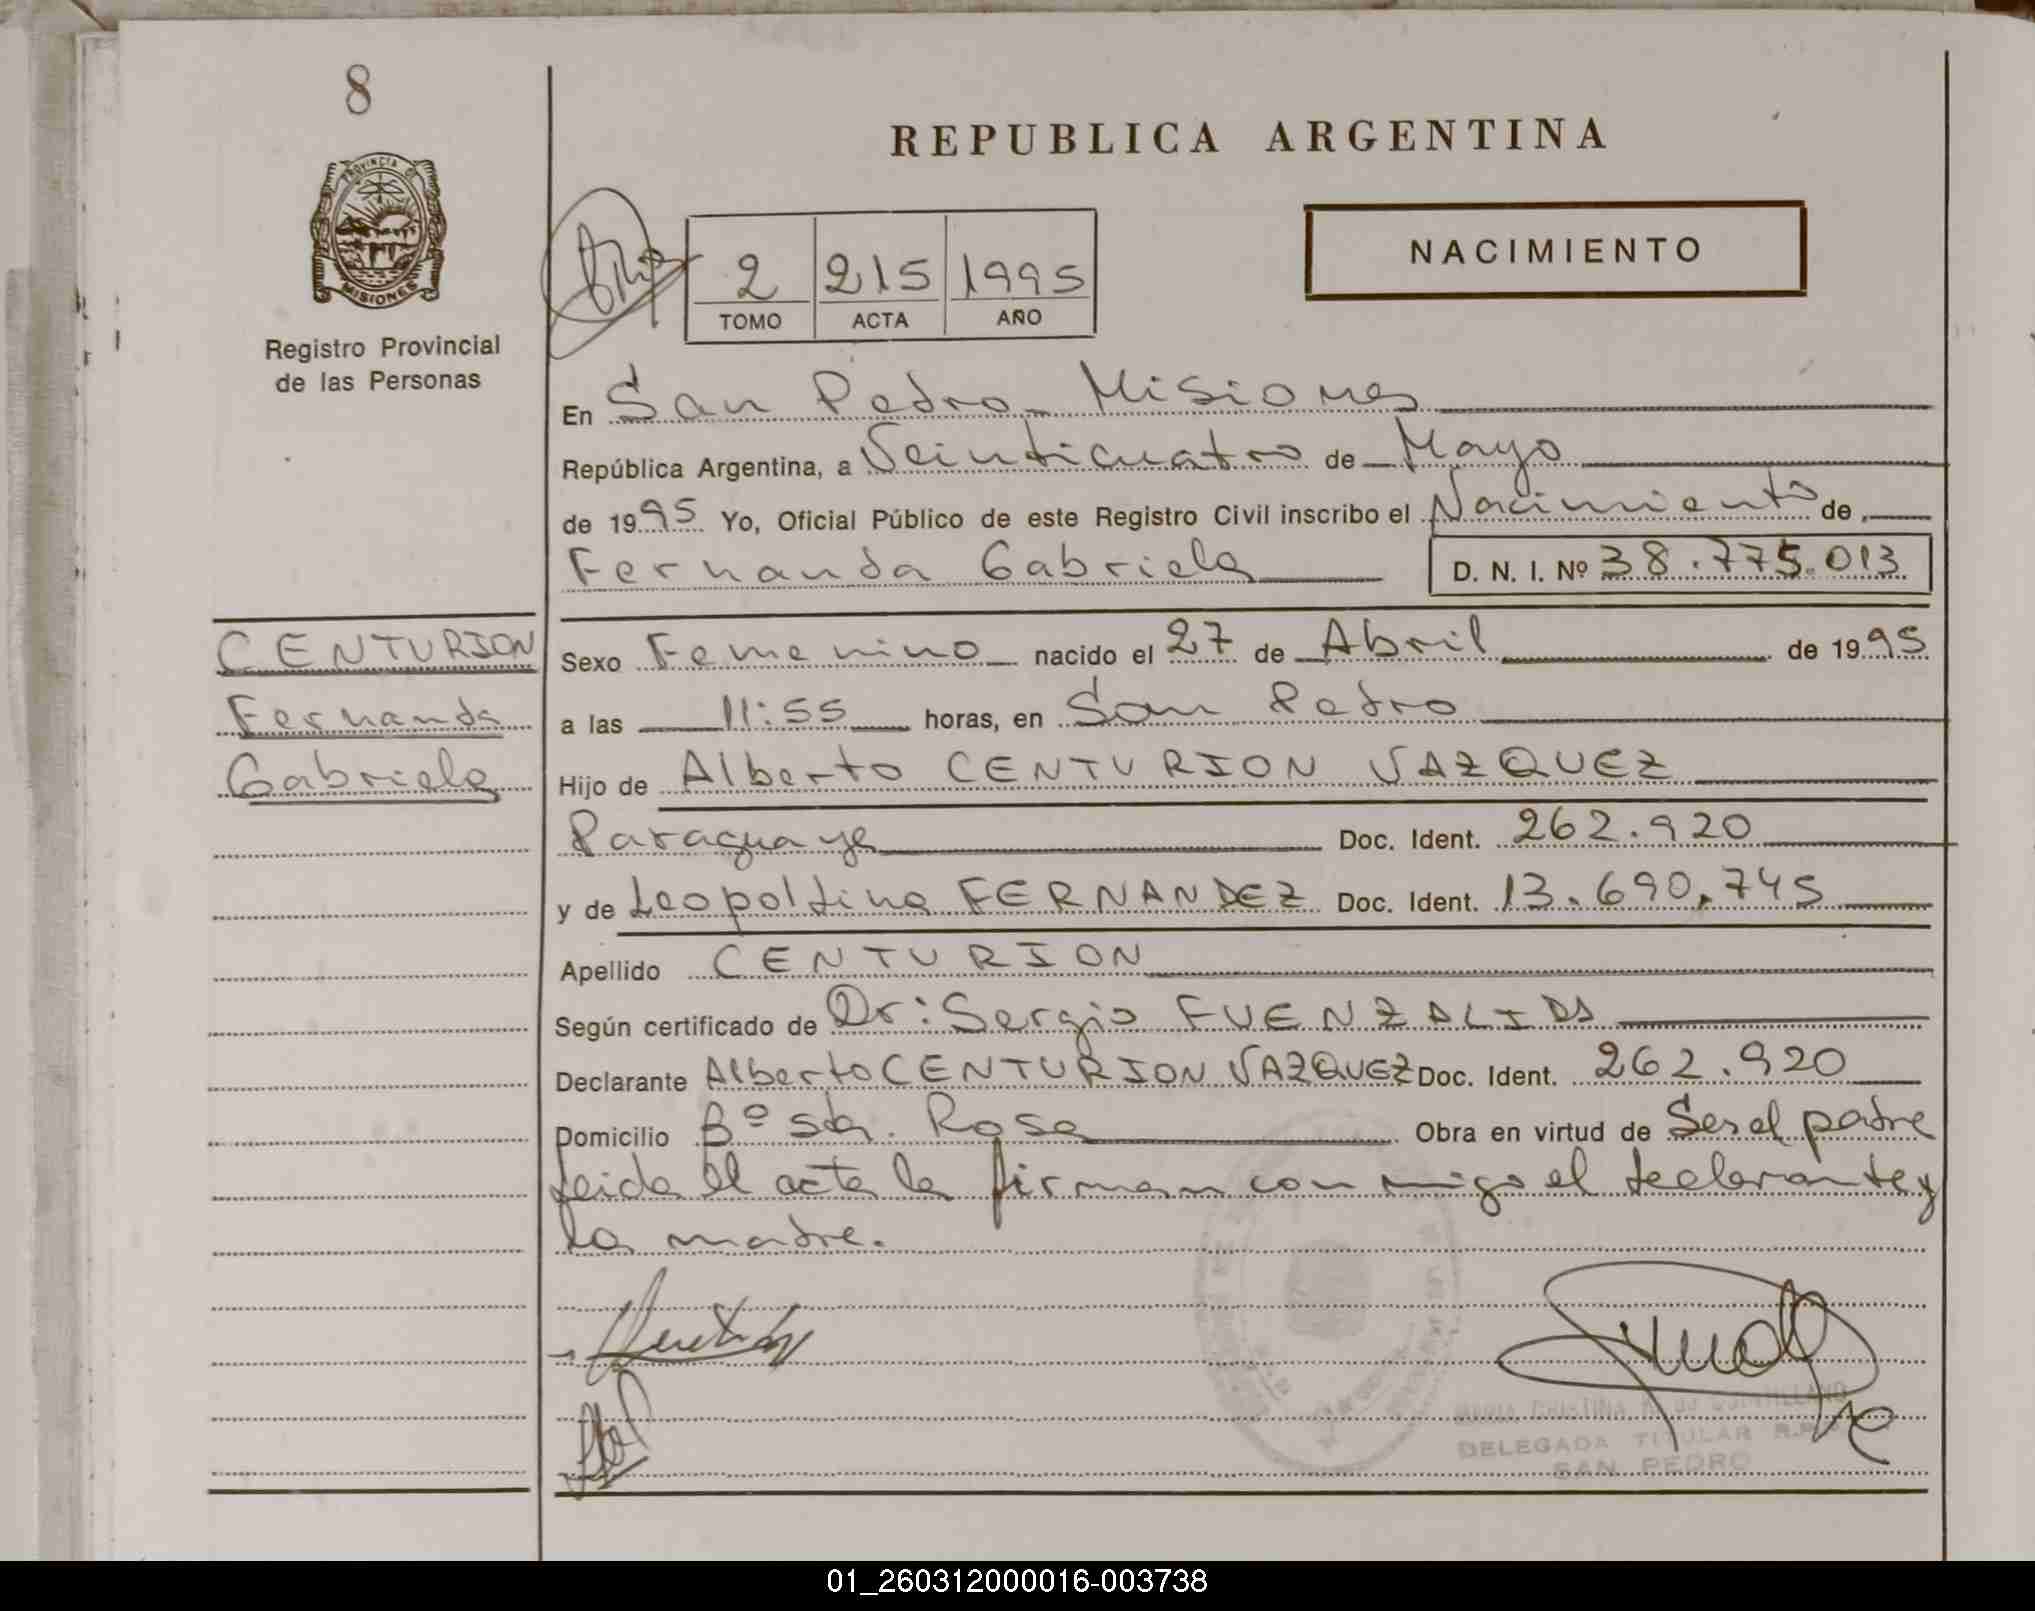 8
PROVINCIA DE
MISIONES
Registro Provincial
de las Personas
REPUBLICA ARGENTINA
NACIMIENTO
2 215 1995
TOMO ACTA AÑO
En San Pedro - Misiones
República Argentina, a Veinticuatro de Mayo
de 1995 Yo, Oficial Público de este Registro Civil inscribo el Nacimiento de
Fernanda Gabriela D. N. I. Nº 38.775.013
CENTURION
Fernanda
Gabriela
Sexo Femenino nacido el 27 de Abril de 1995
a las 11:55 horas, en San Pedro
Hijo de Alberto CENTURION VAZQUEZ
Paraguaya Doc. Ident. 262.920
y de Leopoldina FERNANDEZ Doc. Ident. 13.690.745
Apellido CENTURION
Según certificado de Dr: Sergio FUENZALIDA
Declarante Alberto CENTURION VAZQUEZ Doc. Ident. 262.920
Domicilio Bº sta. Rosa Obra en virtud de Ser el padre
Leida el acta la firman conmigo el declarante y
la madre.
MARIA CRISTINA
DELEGADA TITULAR R.P.
SAN PEDRO
01_260312000016-003738